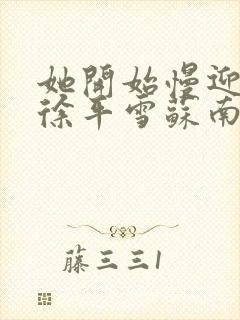 她開始慢迎
徐平雪蘇南
藤三三1